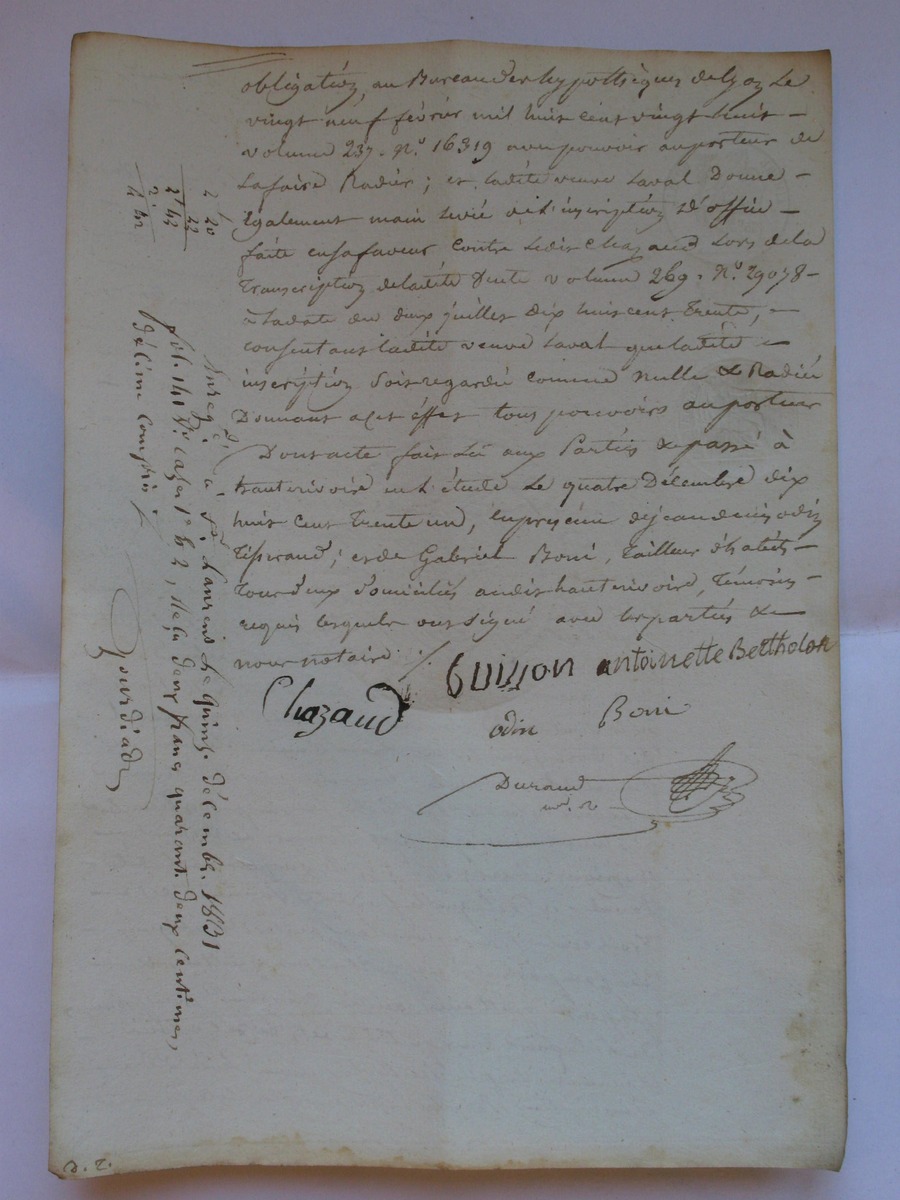 obligation, au Bureau des hypothèques de Lyon Le
vingt neuf février mil huit cent vingt huit –
volume 237. N.º 16319 avec pouvoir au porteur de
La faire Radier ; et ladite veuve Laval Donne –
Egalement main levée de l'inscription d'office –
faite en sa faveur contre Ledit Chazaud Lors de la
Transcription de ladite Vente volume 269. N.º 29078 –
à la date du deux juillet dix huit cent trente, –
consentant ladite veuve Laval que ladite –
inscription soit regardée comme nulle & Radiée
Donnant a cet éffet tous pouvoirs au porteur
Dont acte fait Lu aux Parties & passé à
hauterivoire en l'étude Le quatre Décembre dix
huit cent trente un, en présence de jean denis odin
Tisserand ; et de Gabriel Boni, Tailleur d'habits –
tous deux domiciliés audit hauterivoire, témoins –
requis lesquels ont signé avec les parties &
nous notaire ./.
Chazaud GUIJJON antoinette Bertholon
odin Boni
Durand
n.re
Enreg. à St. Laurent Le quinze décembre 1831
fol. 141 V.º case 1re & 2, reçu deux francs quarante deux centimes,
décime compris ./.
2 20
22
2 42
d. r.